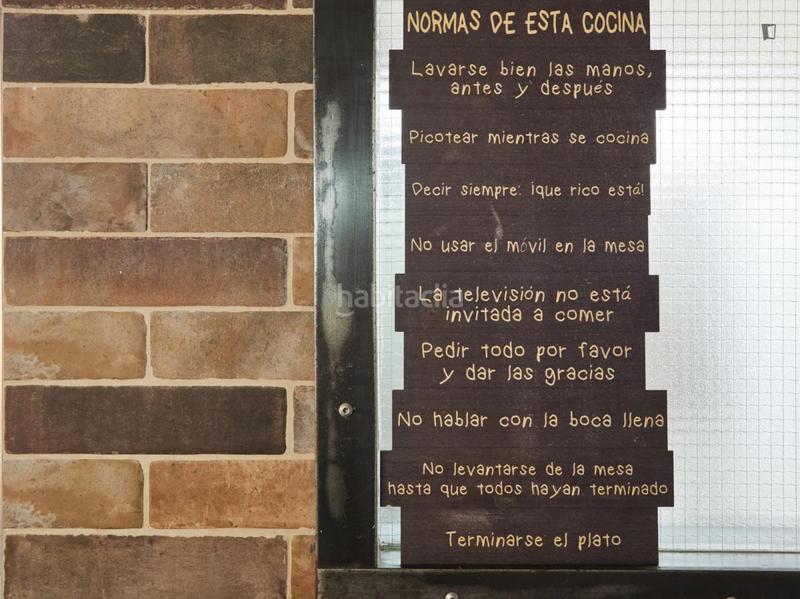 NORMAS DE ESTA COCINA
Lavarse bien las manos,
antes y después
Picotear mientras se cocina
Decir siempre: ¡que rico está!
No usar el móvil en la mesa
habitaclia
La televisión no está
invitada a comer
Pedir todo por favor
y dar las gracias
No hablar con la boca llena
No levantarse de la mesa
hasta que todos hayan terminado
Terminarse el plato